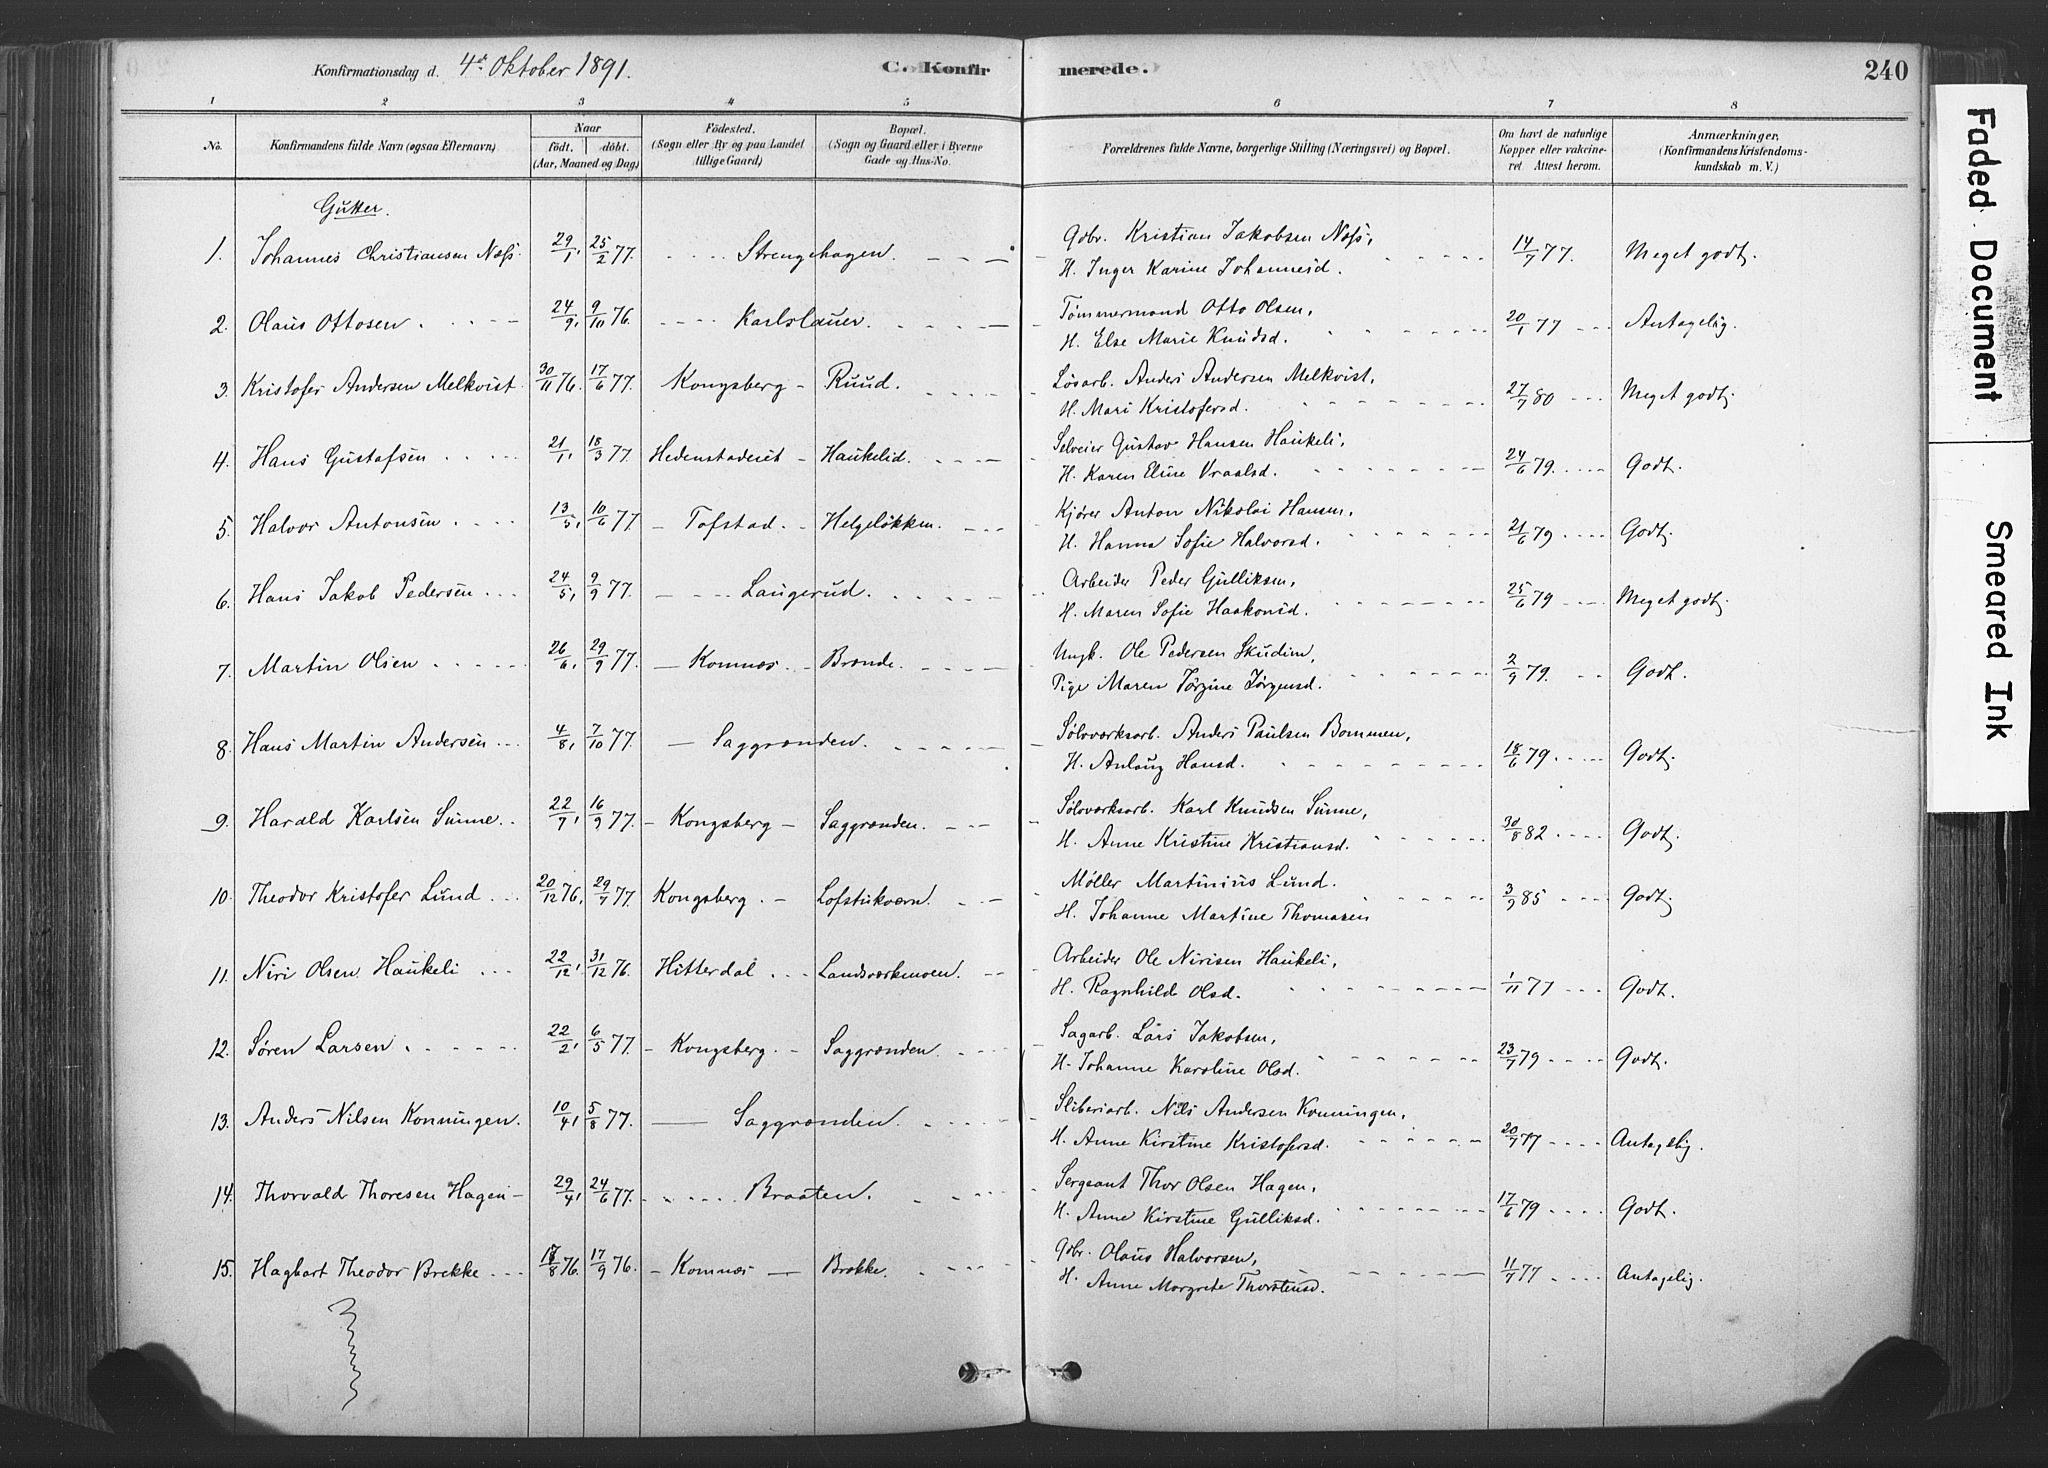 Konfirmationsdag d. 4de Oktober 1891. C. Konfirmerede. 240
1 2 3 4 5 6 7 8
No. Konfirmandens fulde Navn (ogsaa Efternavn) Naar födt. döbt. (Aar, Maaned og Dag) Födested. (Sogn eller By og paa Landet tillige Gaard) Bopæl. (Sogn og Gaard eller i Byerne Gade og Hus-No. Forældrenes fulde Navne, borgerlige Stilling (Næringsvei) og Bopæl. Om havt de naturlige Kopper eller vakcineret. Attest herom. Anmærkninger. (Konfirmandens Kristendomskundskab m. V.)
Gutter.
1. Johannes Christiansen Næss. 29/1, 25/2 77. Strengehagen. Gdbr. Kristian Jakobsen Næss, 14/7 77. Meget godt.
H. Inger Karine Johannesd.
2. Olaus Ottosen. 24/9, 9/10 76. Karlslauer. Tømmermand Otto Olsen, 20/1 77 Antagelig.
H. Else Marie Knudsd.
3. Kristofer Andersen Melkvist. 30/11 76. 17/6 77. Kongsberg - Ruud. Løsarb. Anders Andersen Melkvist, 27/7 80 Meget godt.
H. Mari Kristofersd.
4. Hans Gustafsen 21/1, 18/3 77. Hedenstaderet - Haukelid. Selveier Gustav Hansen Haukeli, 24/6 79. Godt.
H. Karen Eline Vraalsd.
5. Halvor Antonsen. 13/5, 10/6 77 - Tofstad. - Helgeløkken. Kjører Anton Nikolai Hansen, 21/6 79 Godt.
H. Hanna Sofie Halvorsd.
6. Hans Jakob Pedersen 24/5, 9/9 77. Laugerud. Arbeider Peder Gulliksen, 25/6 79 Meget godt.
H. Maren Sofie Haakonsd.
7. Martin Olsen 26/6, 29/9 77. - Komnæs. - Brænde. Ungk. Ole Pedersen Skudim, 2/9 79. Godt.
Pige Maren Jørgine Jørgensd.
8. Hans Martin Andersen 4/8, 7/10 77. - Saggrænden. Sølvværksarb. Anders Paulsen Bommen, 18/6 79. Godt.
H. Anlaug Hansd.
9. Harald Karlsen Sunne. 22/7, 16/9 77. - Kongsberg - Saggrænden. Sølvværksarb. Karl Knudsen Sunne, 30/8 82. Godt.
H. Anne Kristine Kristiansd.
10. Theodor Kristofer Lund. 20/12 76, 29/7 77. Kongsberg. - Lofstukværn Møller Martinius Lund. 3/9 85 Godt.
H. Johanne Martine Thomasen
11. Niri Olsen Haukeli 22/12, 31/12 76. Hitterdal Landsværkmoen. Arbeider Ole Nirisen Haukeli, 1/11 77 Godt.
H. Ragnhild Olsd.
12. Søren Larsen. 22/2, 6/5 77. - Kongsberg. - Saggrænden. Sagarb. Lars Jakobsen, 23/7 79 Godt.
H. Johanne Karoline Olsd.
13. Anders Nilsen Konningen. 10/4, 5/8 77. Saggrænden. Sliberiarb. Nils Andersen Konningen, 20/7 77 Antagelig.
H. Anne Kirstine Kristofersd.
14. Thorvald Thoresen Hagen - 29/4, 24/6 77. Braaten. Sergeant Thor Olsen Hagen, 17/6 79 Godt.
H. Anne Kirstine Gulliksd.
15. Hagbart Theodor Brekke 18/8 76. 17/9 76. - Komnæs - Brekke. Gdbr. Olaus Halvorsen, 11/7 77 Antagelig.
H. Anne Margrete Thorstensd.
Faded Document
Smeared Ink